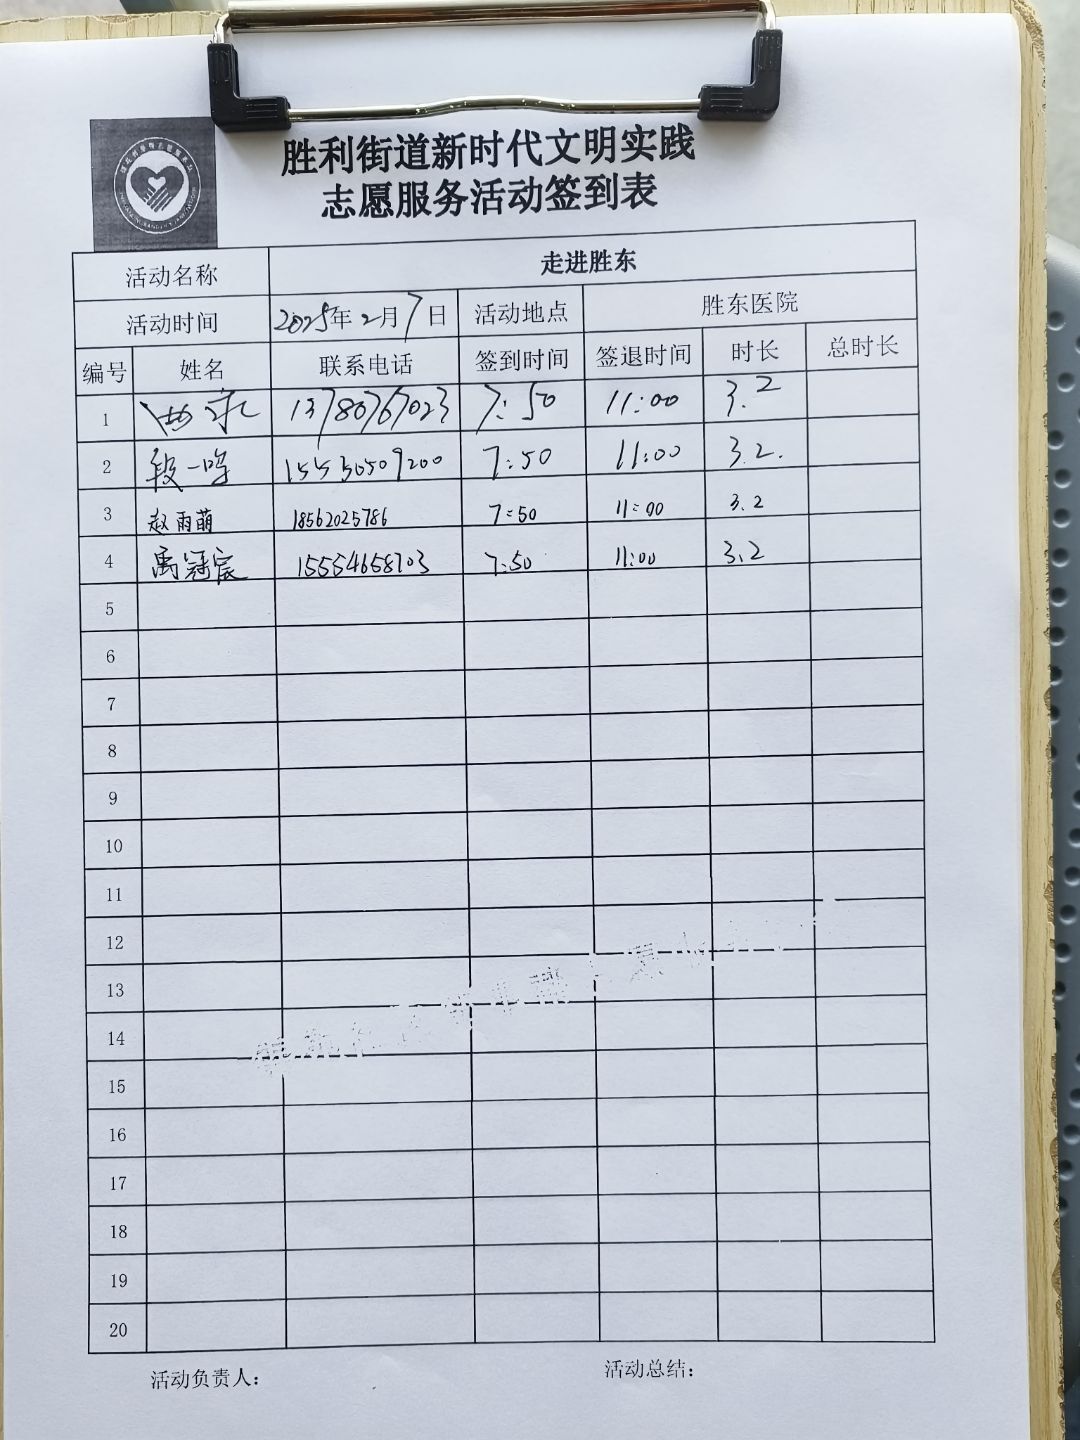 胜利街道新时代文明实践
志愿服务活动签到表
活动名称 走进胜东
活动时间 2025年2月7日 活动地点 胜东医院
编号 姓名 联系电话 签到时间 签退时间 时长 总时长
1 13780767023 7:50 11:00 3.2
2 段一鸣 15550509200 7:50 11:00 3.2.
3 赵雨萌 18562025786 7:50 11:00 3.2
4 禹冠宸 15554658703 7:50 11:00 3.2
5
6
7
8
9
10
11
12
13
14
15
16
17
18
19
20
活动负责人: 活动总结: